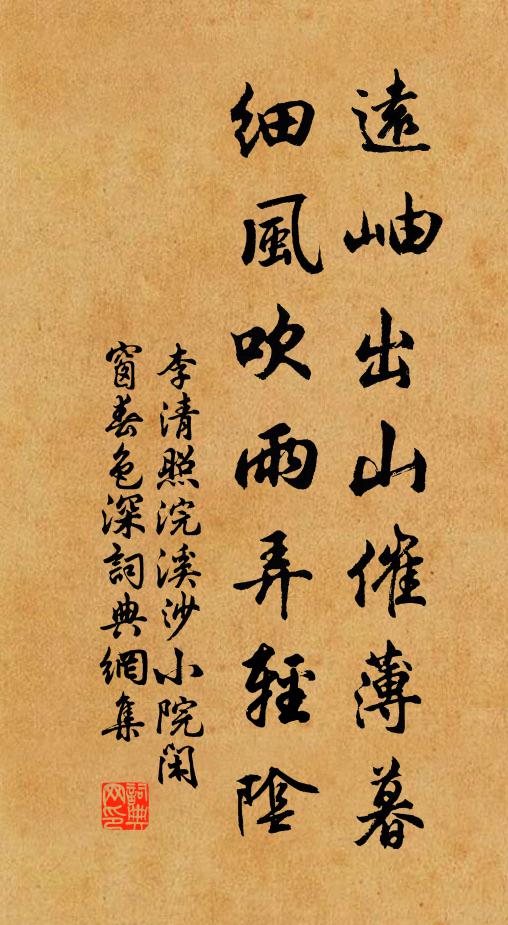 遠岫出山催薄暮
細風吹雨弄輕陰
李清照浣溪沙小院閑
窗春色深詞典網集
詞典网印